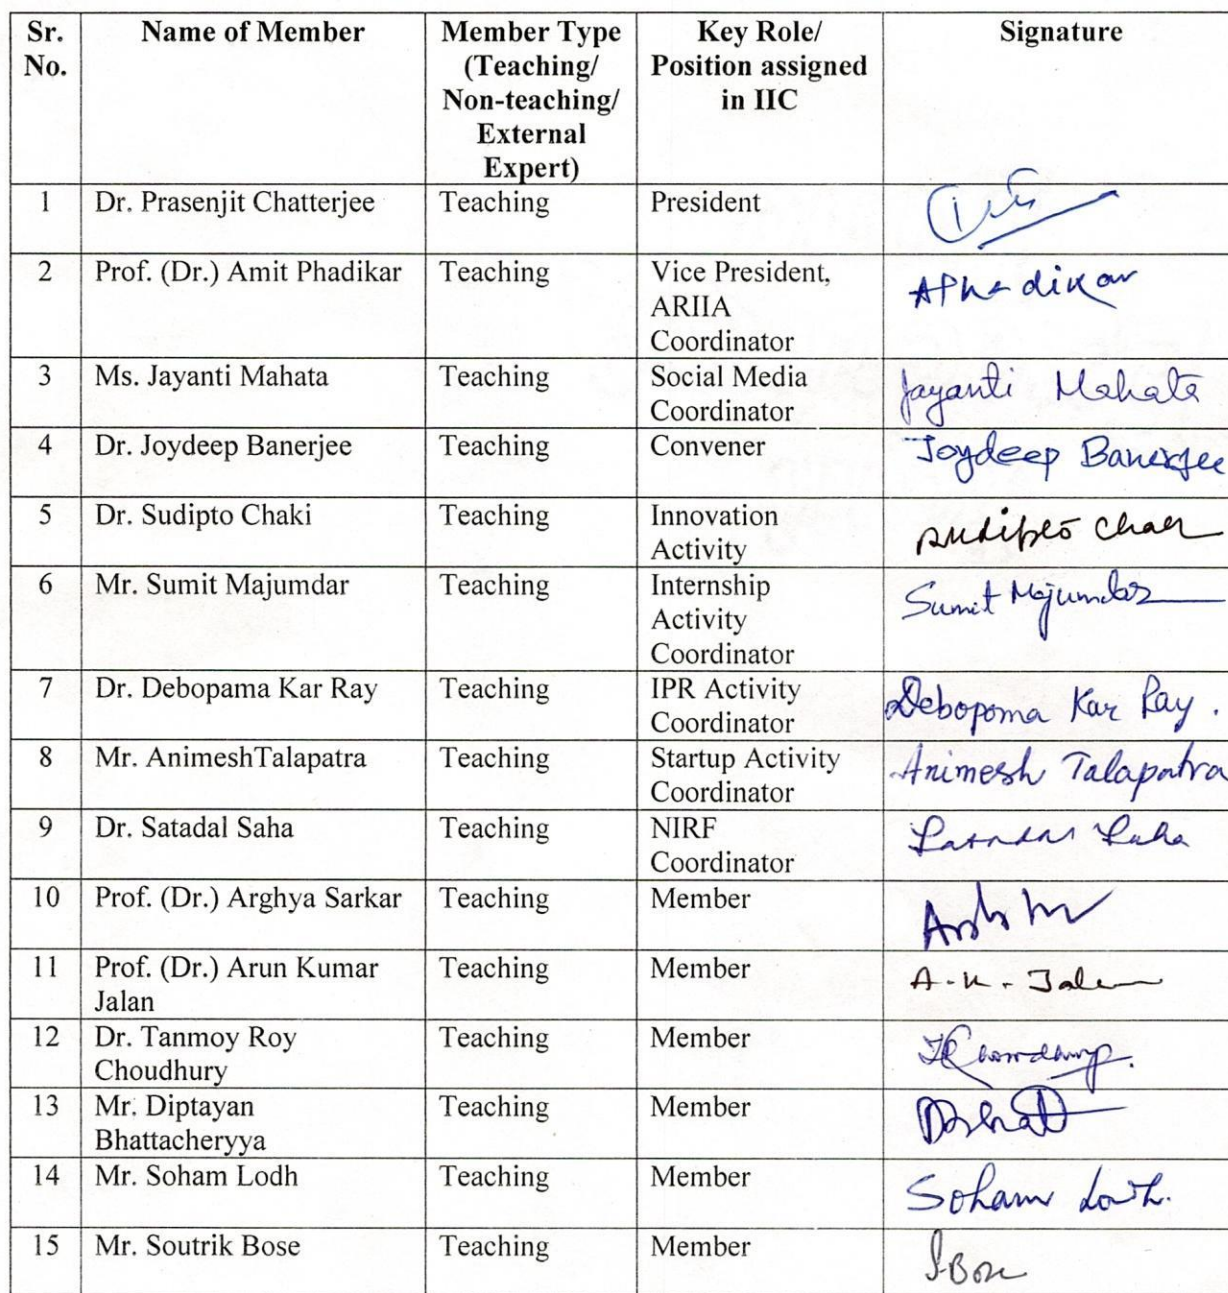 Sr. No. Name of Member Member Type (Teaching/ Non-teaching/ External Expert) Key Role/ Position assigned in IIC Signature
1 Dr. Prasenjit Chatterjee Teaching President
2 Prof. (Dr.) Amit Phadikar Teaching Vice President, ARIIA Coordinator APhadikar
3 Ms. Jayanti Mahata Teaching Social Media Coordinator Jayanti Mahata
4 Dr. Joydeep Banerjee Teaching Convener Joydeep Banerjee
5 Dr. Sudipto Chaki Teaching Innovation Activity Sudipto Chaki
6 Mr. Sumit Majumdar Teaching Internship Activity Coordinator Sumit Majumdar
7 Dr. Debopama Kar Ray Teaching IPR Activity Coordinator Debopoma Kar Ray.
8 Mr. AnimeshTalapatra Teaching Startup Activity Coordinator Animesh Talapatra
9 Dr. Satadal Saha Teaching NIRF Coordinator Satadal Saha
10 Prof. (Dr.) Arghya Sarkar Teaching Member
11 Prof. (Dr.) Arun Kumar Jalan Teaching Member A.K. Jalan
12 Dr. Tanmoy Roy Choudhury Teaching Member
13 Mr. Diptayan Bhattacheryya Teaching Member
14 Mr. Soham Lodh Teaching Member Soham Lodh.
15 Mr. Soutrik Bose Teaching Member S.Bose